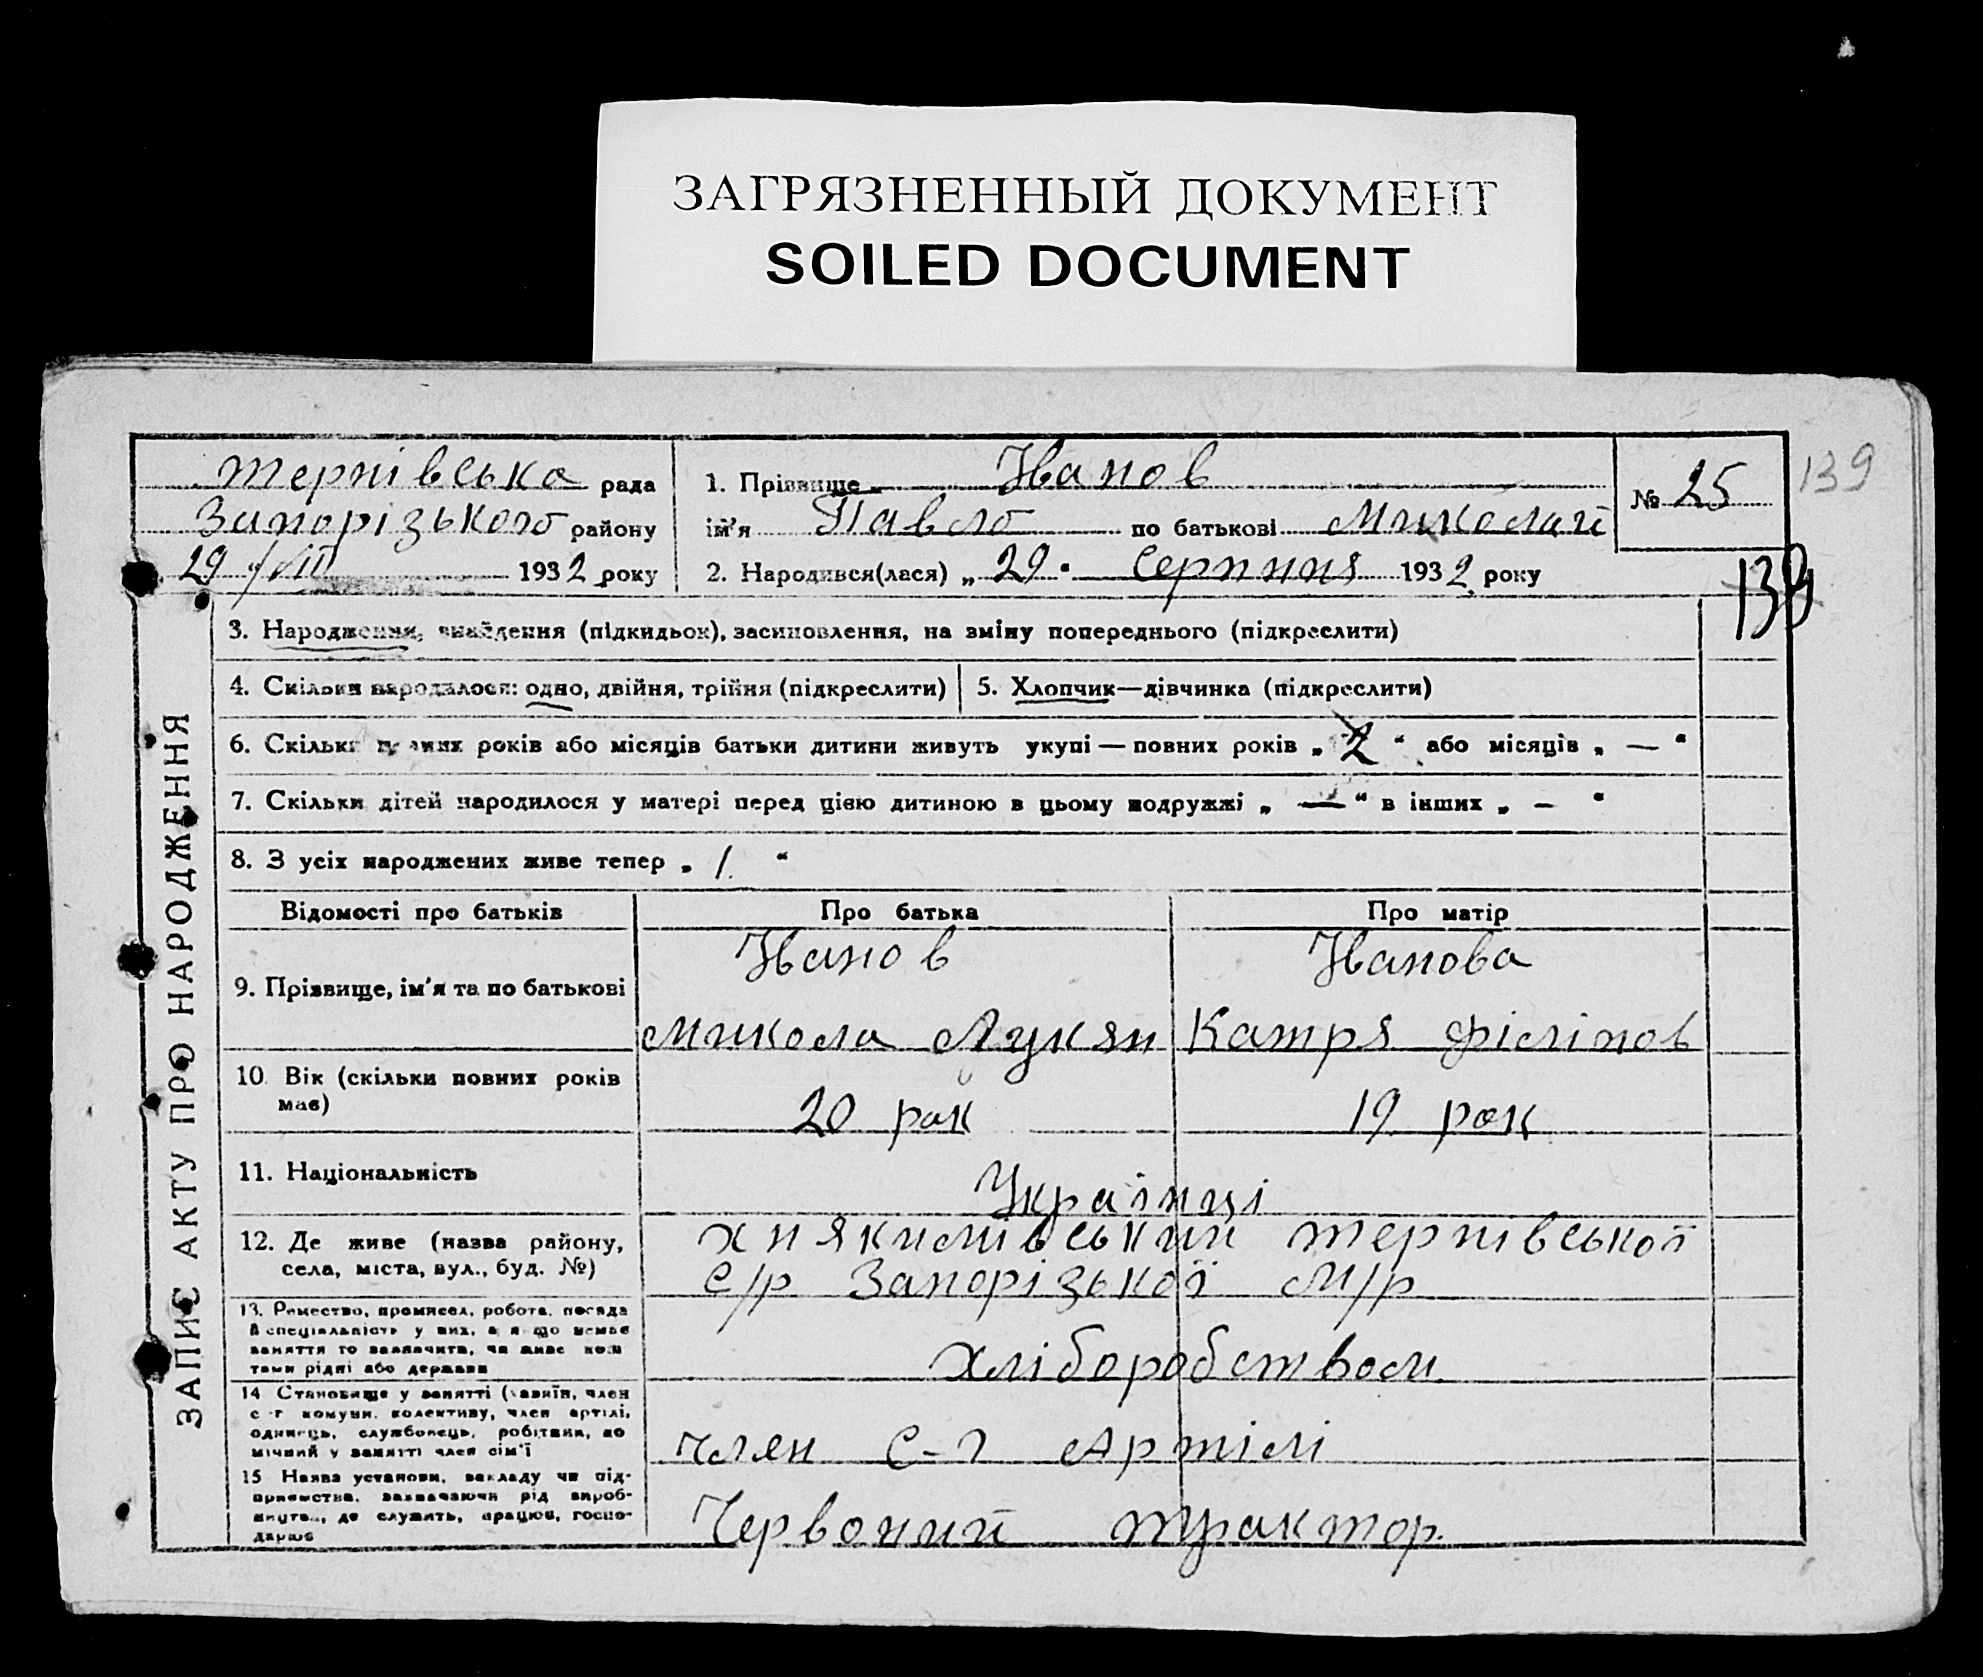 ЗАГРЯЗНЕННЫЙ ДОКУМЕНТ
SOILED DOCUMENT
Тернівська рада
Запорізького району
29/VIII 1932 року
1. Прізвище Іванов
ім'я Павло по батькові Миколай
2. Народився(лася) „29" Серпння 1932 року
№ 25
139
139
ЗАПИС АКТУ ПРО НАРОДЖЕННЯ
3. Народження, знайдення (підкидьок), засиновлення, на зміну попереднього (підкреслити)
4. Скільки народилося: одно, двійня, трійня (підкреслити)
5. Хлопчик—дівчинка (підкреслити)
6. Скільки повних років або місяців батьки дитини живуть укупі — повних років „ 2 " або місяців „ — "
7. Скільки дітей народилося у матері перед цією дитиною в цьому подружжі „ — " в інших „ - "
8. З усіх народжених живе тепер „ 1 "
Відомості про батьків
Про батька
Про матір
9. Прізвище, ім'я та по батькові
Іванов
Микола Лукян
Іванова
Катря Філіпов
10. Вік (скільки повних років
має)
20 рок
19 рок
11. Національність
Українці
12. Де живе (назва району,
села, міста, вул., буд. №)
Тернівської
с/р Запорізької М/р
13. Ремество, промисел, робота, посада
й спеціяльність у них, а якщо немає
заняття то зазначити, чи живе кош-
тами рідні або держави
хліборобством
14. Становище у занятті (хазяїн, член
с-г комуни, колективу, член артілі,
одинець, службовець, робітник, до
мічний у занятті член сім'ї
член с-г Артілі
15. Назва установи, закладу чи під-
приємства, зазначаючи рід вироб-
ництва, де служить, працює, госпо-
дарює
Червоний трактор.